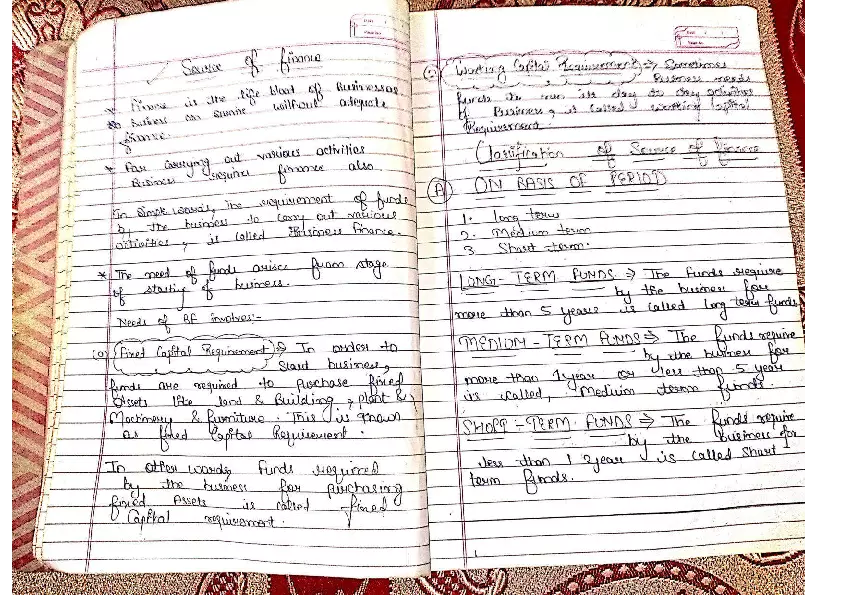 Source of finance
* Finance is the life blood of Business as
no business can survive without adequate
finance.
* For carrying out various activities
Business requires finance also
In simple words, the requirement of funds
by the business to carry out various
activities, is called Business Finance.
* The need of funds arises from stage
of starting of business.
Needs of BF involves:-
(a) Fixed Capital Requirement ⇒ In order to
start business,
funds are required to purchase fixed
Assets like land & Building, plant &
Machinery & furniture. This is known
as fixed Capital Requirement.
In other words, funds required
by the business for purchasing
fixed Assets is called fixed
Capital requirement.
Working Capital Requirement ⇒ Sometimes
Business needs
funds to run its day to day activities
of Business, is called working Capital
Requirement.
Classification of Source of finance
(A) ON BASIS OF PERIOD
1. long term
2. Medium term
3. Short term.
LONG-TERM FUNDS ⇒ The funds require
by the business for
more than 5 years is called long term funds
MEDIUM-TERM FUNDS ⇒ The funds require
by the business for
more than 1 year or less than 5 year
is called, Medium term funds.
SHORT-TERM FUNDS ⇒ The funds require
by the Business for
less than 1 year is called short
term funds.